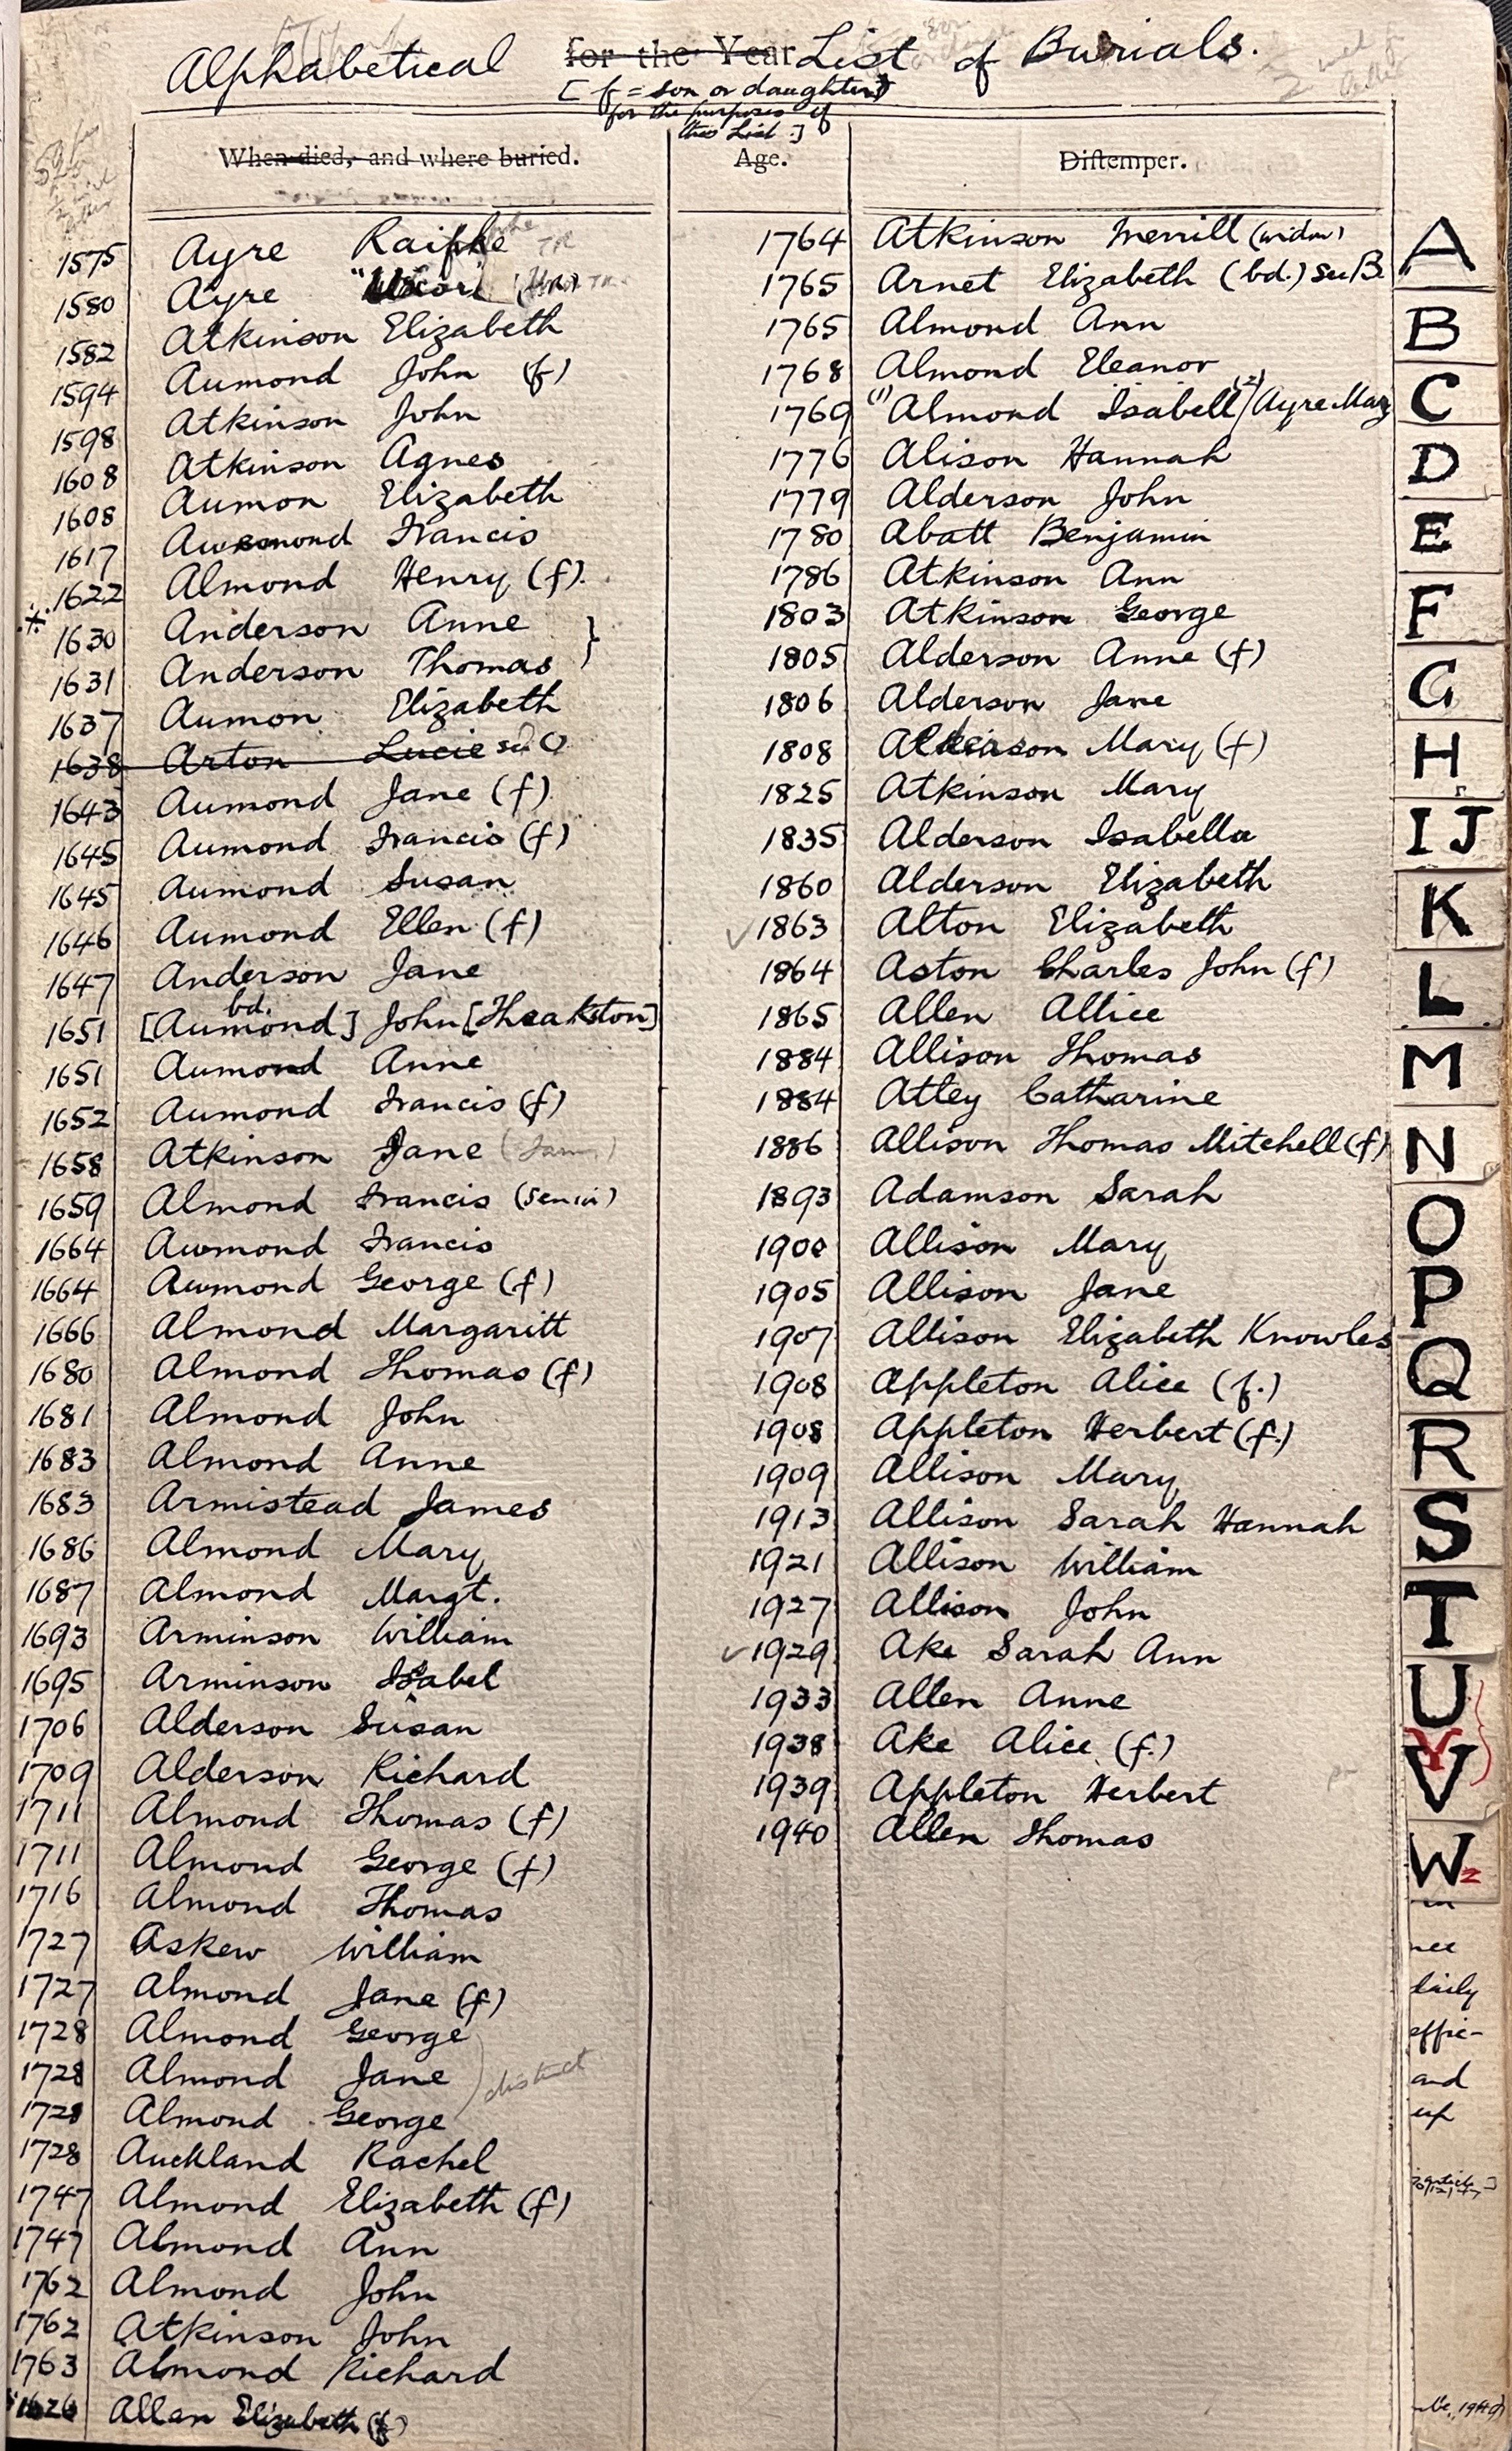 Alphabetical for the Year List of Burials.
[ f = son or daughter
for the purposes of
this List.]
When died, and where buried.
Age.
Distemper.
1575 Ayre Raiphe
1580 Ayre
1582 Atkinson Elizabeth
1594 Aumond John (f)
1598 Atkinson John
1608 Atkinson Agnes
1608 Aumon Elizabeth
1617 Francis
1622 Almond Henry (f).
1630 Anderson Anne
1631 Anderson Thomas
1637 Aumon Elizabeth
1638 Arton Lucie
1643 Aumond Jane (f)
1645 Aumond Francis (f)
1645 Aumond Susan
1646 Aumond Ellen (f)
1647 Anderson Jane
bd.
1651 [Aumond] John [Theakston]
1651 Aumond Anne
1652 Aumond Francis (f)
1658 Atkinson Jane
1659 Almond Francis (Senior)
1664 Aumond Francis
1664 Aumond George (f)
1666 Almond Margaritt
1680 Almond Thomas (f)
1681 Almond John
1683 Almond Anne
1683 Armistead James
1686 Almond Mary
1687 Almond Margt.
1693 Arminson William
1695 Arminson Isabel
1706 Alderson Susan
1709 Alderson Richard
1711 Almond Thomas (f)
1711 Almond George (f)
1716 Almond Thomas
1727 Askew William
1727 Almond Jane (f)
1728 Almond George
1728 Almond Jane
distinct
1728 Almond George
1728 Auckland Rachel
1747 Almond Elizabeth (f)
1747 Almond Ann
1762 Almond John
1762 Atkinson John
1763 Almond Richard
1626 Allan Elizabeth (f)
1764 Atkinson Merrill (widow)
1765 Arnet Elizabeth (bd.) See B.
1765 Almond Ann
1768 Almond Eleanor
1769 (1) Almond Isabell / (2) Ayre Mary
1776 Alison Hannah
1779 Alderson John
1780 Abatt Benjamin
1786 Atkinson Ann
1803 Atkinson George
1805 Alderson Anne (f)
1806 Alderson Jane
1808 Mary (f)
1825 Atkinson Mary
1835 Alderson Isabella
1860 Alderson Elizabeth
✓ 1863 Alton Elizabeth
1864 Aston Charles John (f)
1865 Allen Allice
1884 Allison Thomas
1884 Atley Catharine
1886 Allison Thomas Mitchell (f)
1893 Adamson Sarah
1900 Allison Mary
1905 Allison Jane
1907 Allison Elizabeth Knowles
1908 Appleton Alice (f.)
1908 Appleton Herbert (f.)
1909 Allison Mary
1913 Allison Sarah Hannah
1921 Allison William
1927 Allison John
✓ 1929 Ake Sarah Ann
1933 Allen Anne
1938 Ake Alice (f.)
1939 Appleton Herbert
1940 Allen Thomas
A
B
C
D
E
F
G
H
I J
K
L
M
N
O
P
Q
R
S
T
U
V
W
nee
daily
effic-
and
up